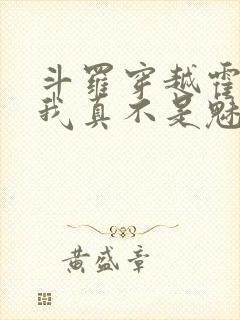 斗羅穿越霍
我真不是魅
黄盛章